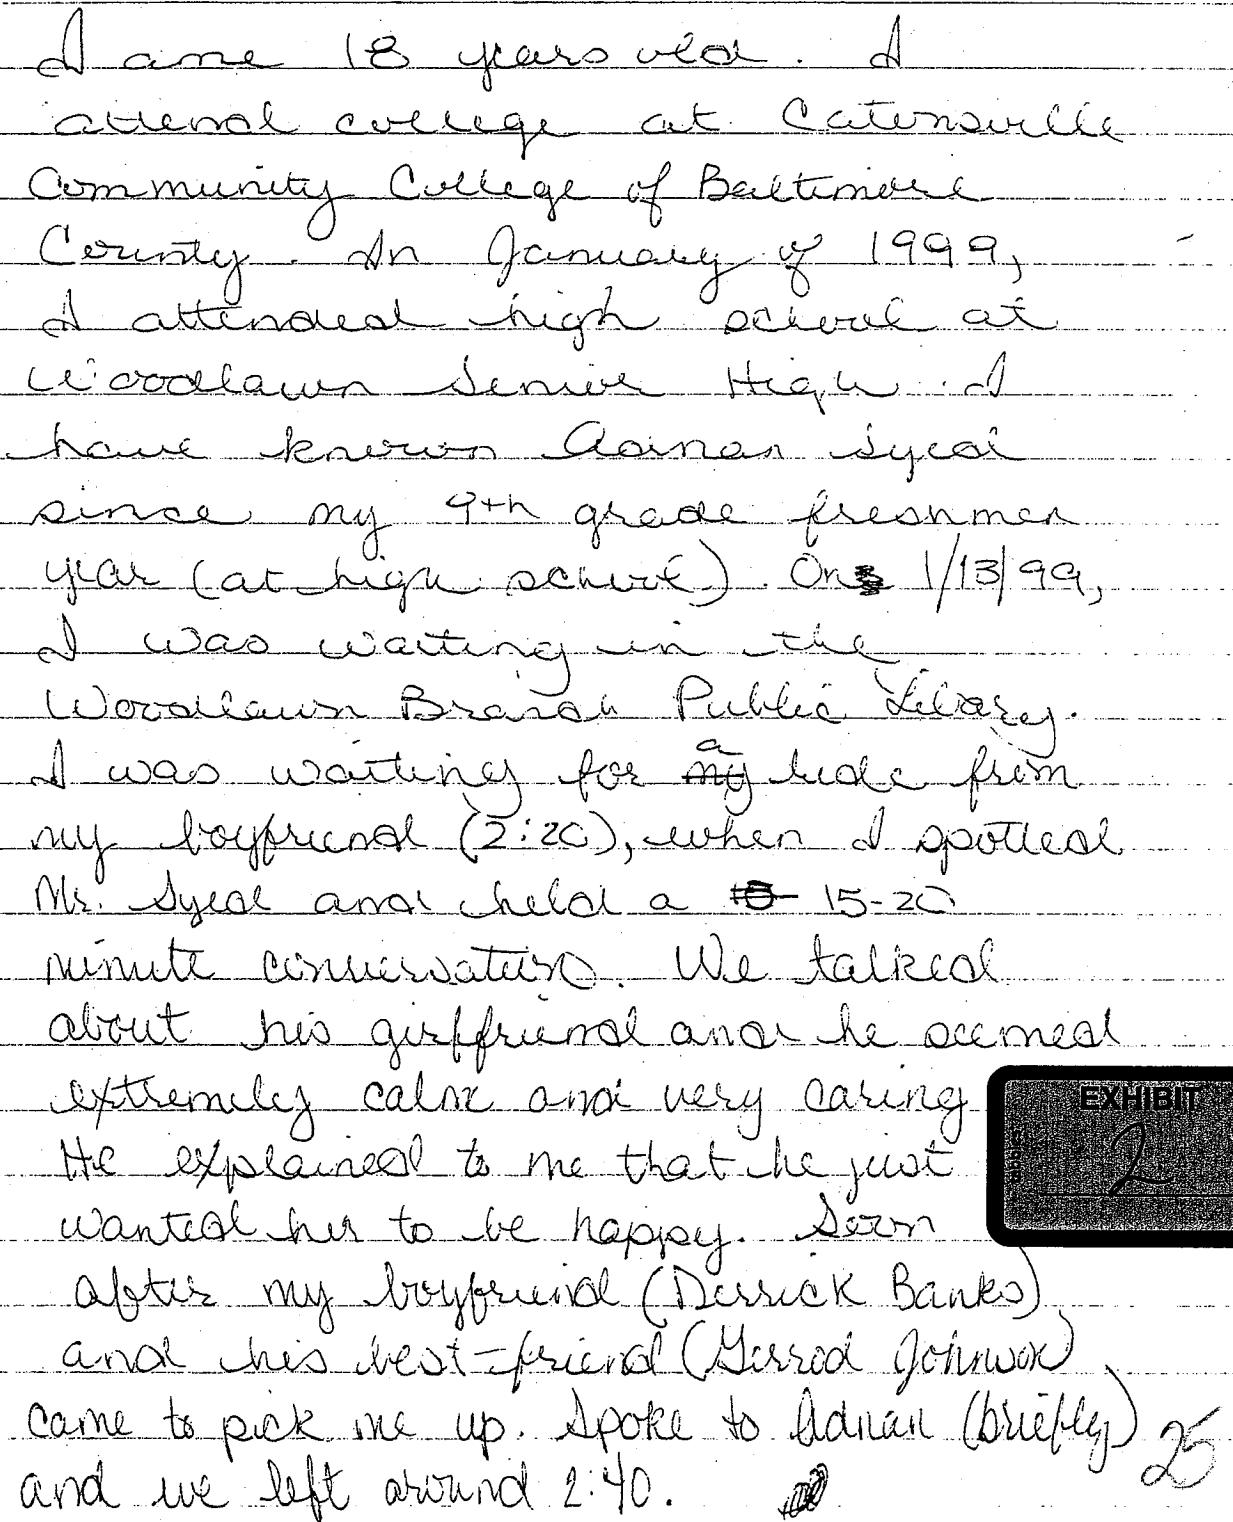 I ame 18 years old. I
attend college at Catonsville
Community College of Baltimore
County. In January of 1999,
I attended high school at
Woodlawn Senior High. I
have known Adnan Syed
since my 9th grade freshmen
year (at high school). On 1/13/99,
I was waiting in the
Woodlawn Branch Public Libary.
I was waiting for my a ride from
my boyfriend (2:20), when I spotted
Mr. Syed and held a 15-20
minute conversation. We talked
about his girlfriend and he seemed
extremely calm and very caring
He explained to me that he just
wanted her to be happy. Soon
after my boyfriend (Derrick Banks)
and his best-friend (Gerrod Johnson)
came to pick me up. Spoke to Adnan (briefly)
and we left around 2:40.
EXHIBIT
2
25